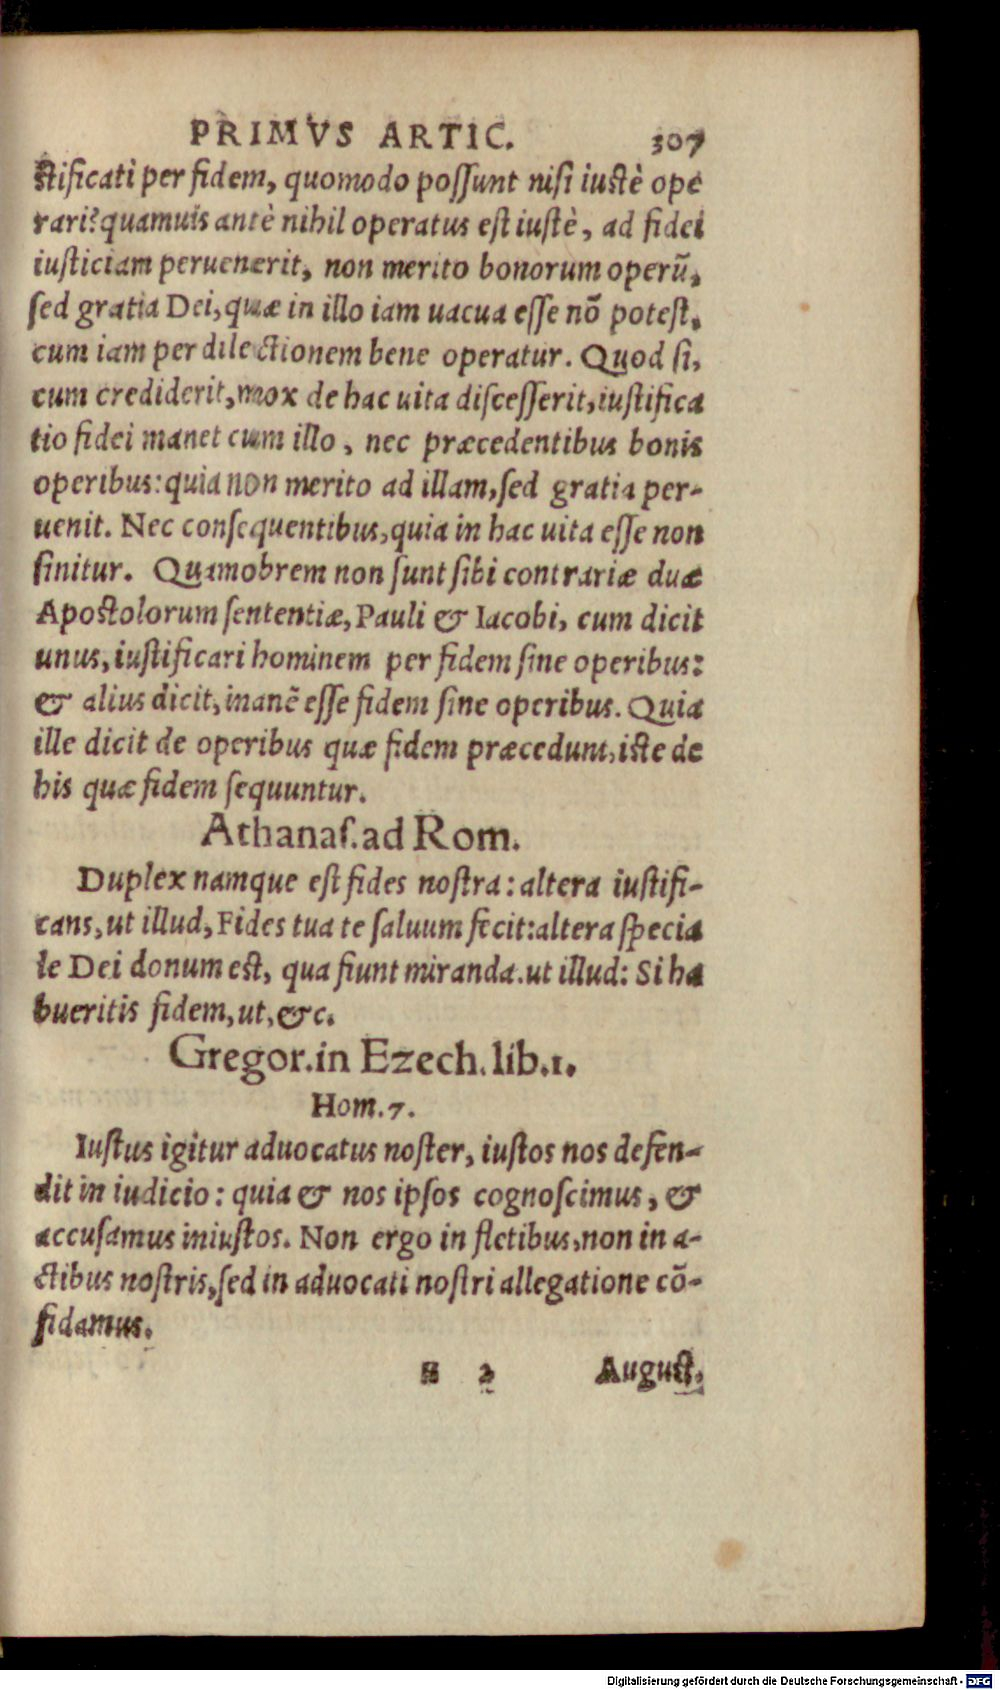 PRIMVS ARTIC. 307
stificati per fidem, quomodo possunt nisi iustè ope
rari? quamuis antè nihil operatus est iustè, ad fidei
iusticiam peruenerit, non merito bonorum operũ,
sed gratia Dei, quæ in illo iam uacua esse nõ potest,
cum iam per dilectionem bene operatur. Quod si,
cum crediderit, mox de hac uita discesserit, iustifica
tio fidei manet cum illo, nec præcedentibus bonis
operibus: quia non merito ad illam, sed gratia per-
uenit. Nec consequentibus, quia in hac uita esse non
sinitur. Quamobrem non sunt sibi contrariæ duæ
Apostolorum sententiæ, Pauli & Iacobi, cum dicit
unus, iustificari hominem per fidem sine operibus:
& alius dicit, inanẽ esse fidem sine operibus. Quia
ille dicit de operibus quæ fidem præcedunt, iste de
his quæ fidem sequuntur.
Athanas. ad Rom.
Duplex namque est fides nostra: altera iustifi-
cans, ut illud, Fides tua te saluum fecit: altera specia
le Dei donum est, qua fiunt miranda. ut illud: Si ha
bueritis fidem, ut, &c.
Gregor. in Ezech. lib. 1.
Hom. 7.
Iustus igitur aduocatus noster, iustos nos defen-
dit in iudicio: quia & nos ipsos cognoscimus, &
accusamus iniustos. Non ergo in fletibus, non in a-
ctibus nostris, sed in aduocati nostri allegatione cõ-
fidamus.
2 August.
Digitalisierung gefördert durch die Deutsche Forschungsgemeinschaft - DFG